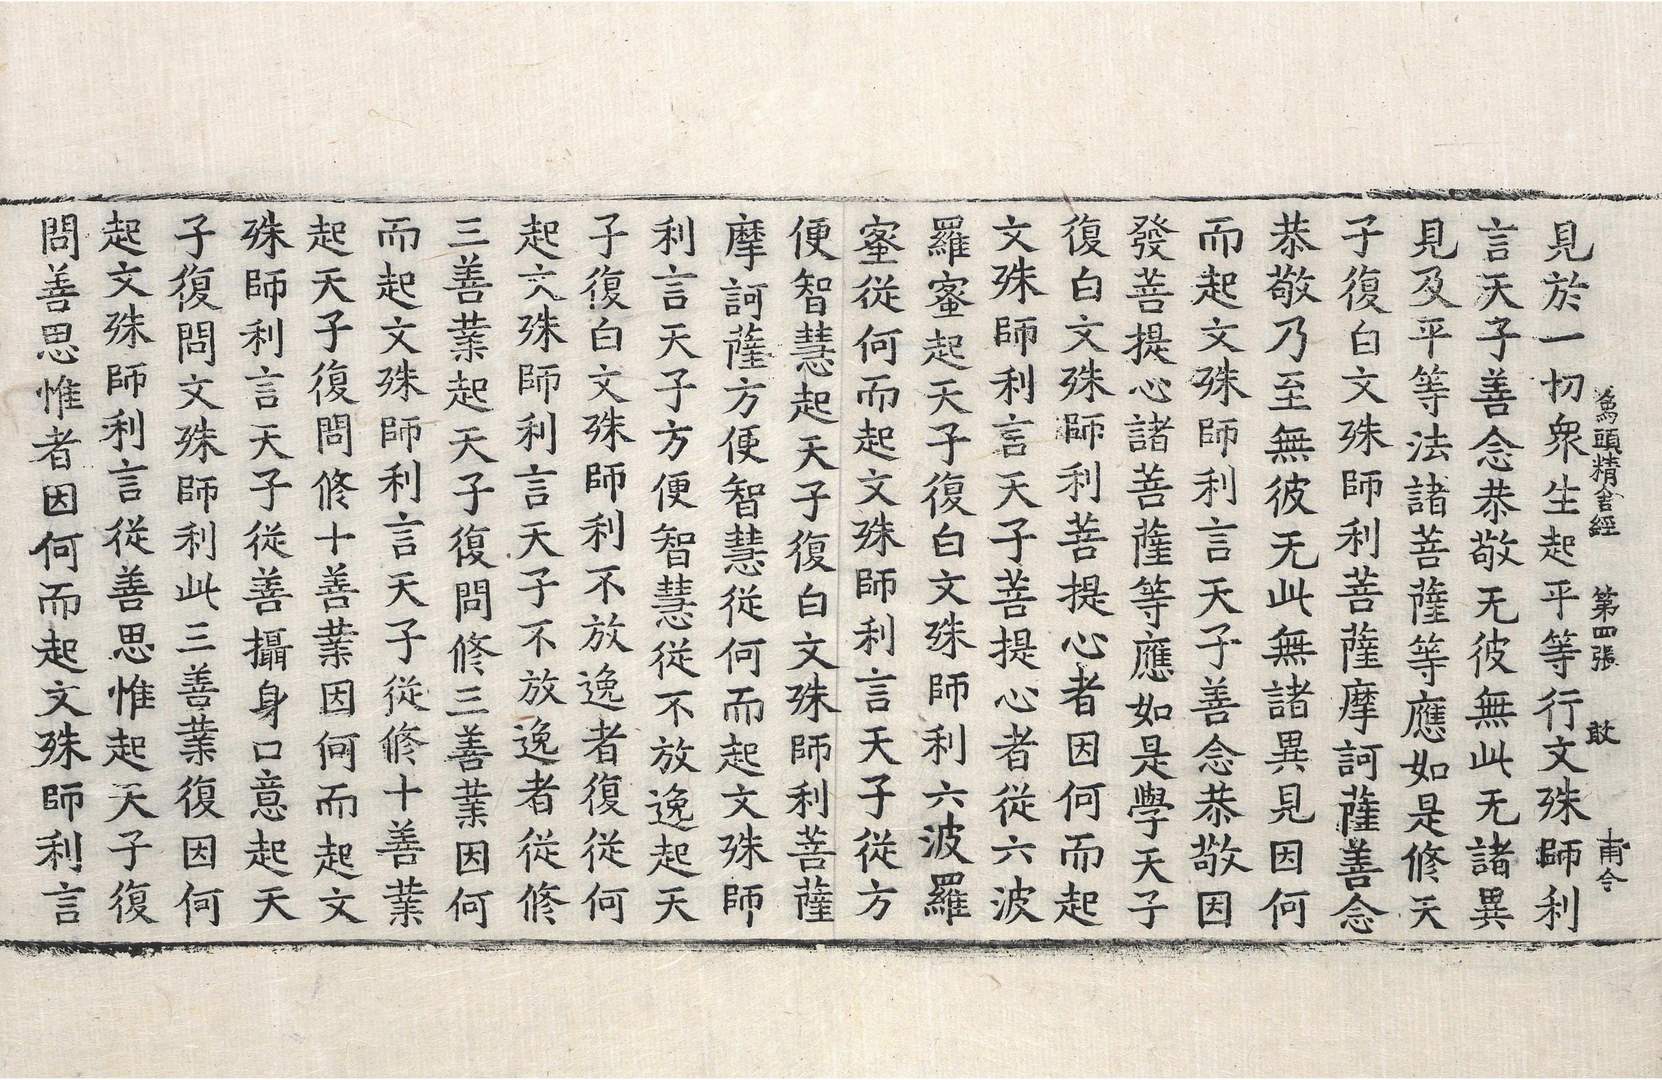 為頭精舍經　第四張　敢　甫令
見於一切衆生起平等行文殊師利
言天子善念恭敬无彼無此无諸異
見及平等法諸菩薩等應如是修天
子復白文殊師利菩薩摩訶薩善念
恭敬乃至無彼无此無諸異見因何
而起文殊師利言天子善念恭敬因
發菩提心諸菩薩等應如是學天子
復白文殊師利菩提心者因何而起
文殊師利言天子菩提心者從六波
羅蜜起天子復白文殊師利六波羅
蜜從何而起文殊師利言天子從方
便智慧起天子復白文殊師利菩薩
摩訶薩方便智慧從何而起文殊師
利言天子方便智慧從不放逸起天
子復白文殊師利不放逸者復從何
起文殊師利言天子不放逸者從修
三善業起天子復問修三善業因何
而起文殊師利言天子從修十善業
起天子復問修十善業因何而起文
殊師利言天子從善攝身口意起天
子復問文殊師利此三善業復因何
起文殊師利言從善思惟起天子復
問善思惟者因何而起文殊師利言